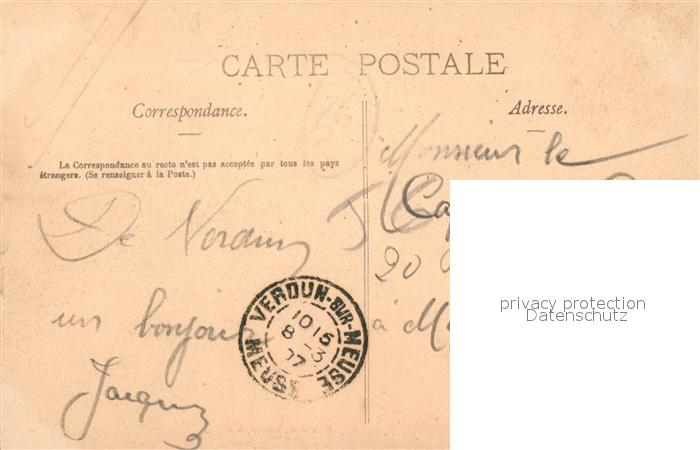 CARTE POSTALE
Correspondance.
Adresse.
La Correspondance au recto n'est pas acceptée par tous les pays
étrangers. (Se renseigner à la Poste.)
Monsieur le
Ca
20
à M
De Verdun
un bonjour
Jacques
VERDUN-SUR-MEUSE
1015
8-3
07
MEUSE
privacy protection
Datenschutz